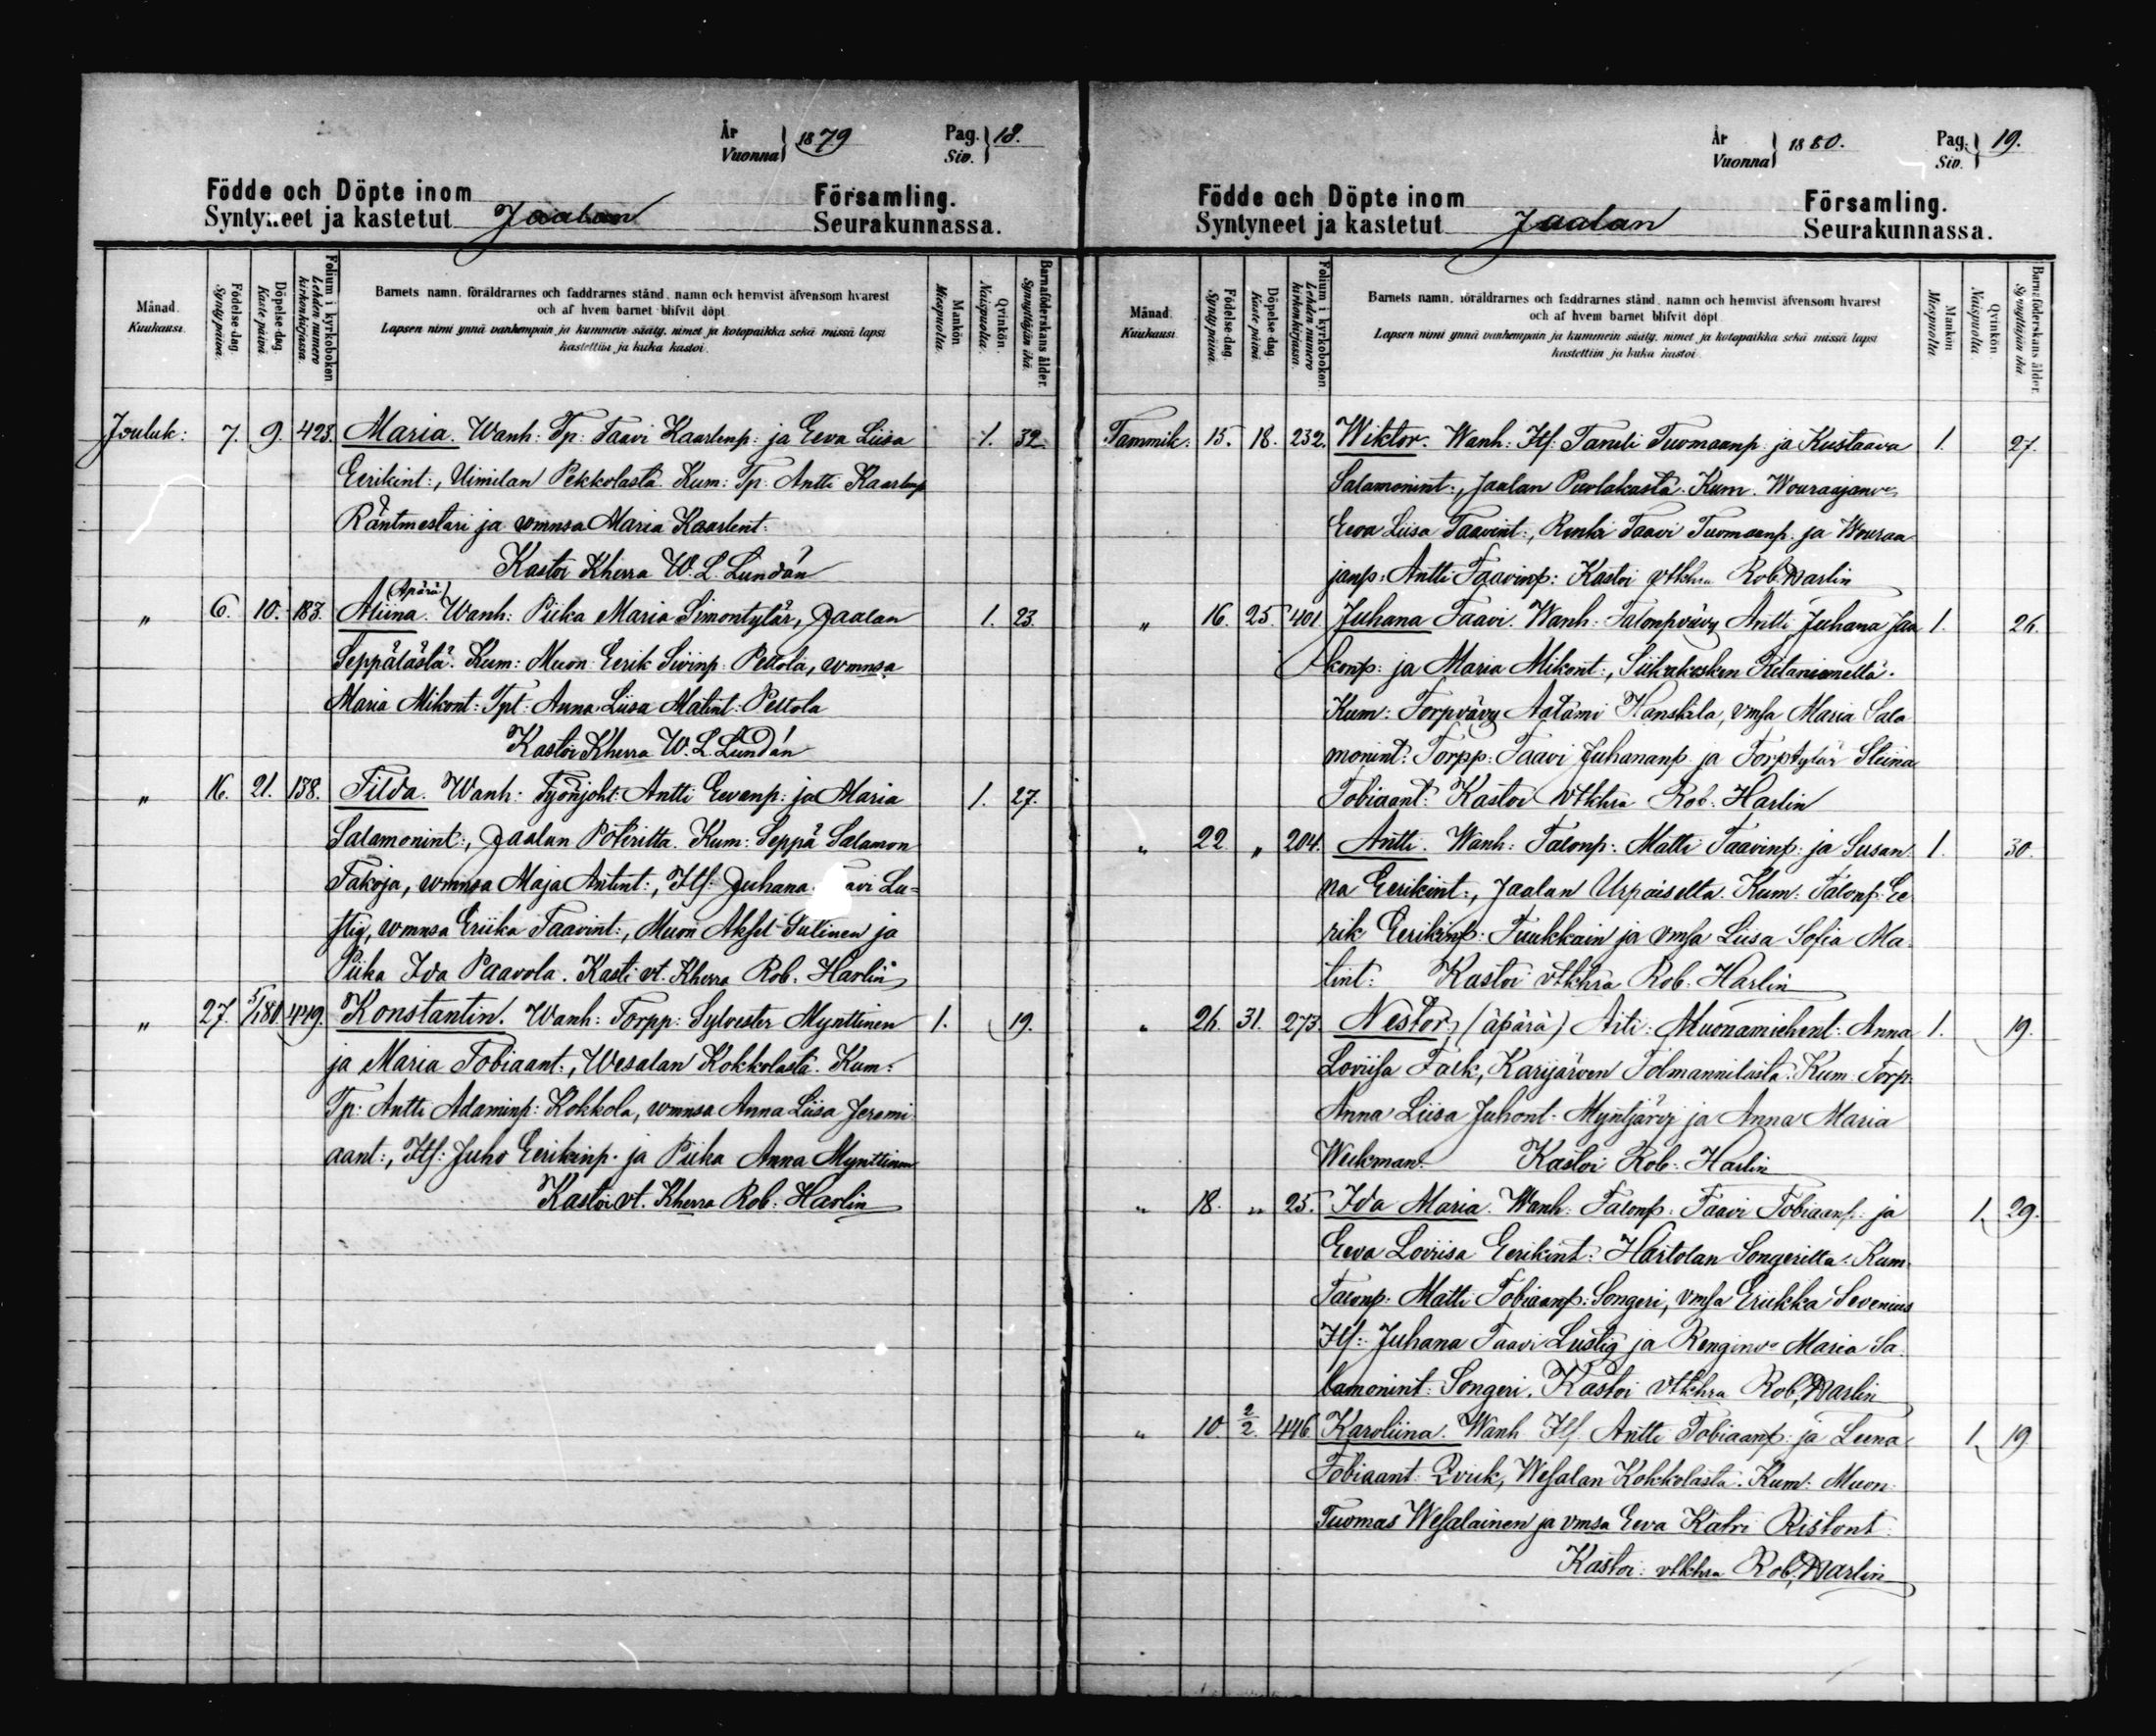 År
Vuonna } 1879 Pag. } 18.
Siv.
Födde och Döpte inom Församling.
Syntyneet ja kastetut Jaalan Seurakunnassa.
Månad. Kuukausi. Födelse-dag. Synty päivä. Döpelse-dag. Kaste päivä. Folium i kyrkoboken. Lehden numero kirkonkirjassa. Barnets namn, föräldrarnes och faddrarnes stånd, namn och hemvist äfvensom hvarest och af hvem barnet blifvit döpt. Lapsen nimi ynnä vanhempain ja kummein sääty, nimet ja kotopaikka sekä missä lapsi kastettiin ja kuka kastoi. Mankön. Miespuolia. Qvinkön. Naispuolia. Barnaföderskans ålder. Synnyttäjän ikä.
Jouluk: 7. 9. 423. Maria. Wanh: Tp: Taavi Kaarlenp: ja Eeva Liisa 1. 32.
Eerikint:, Uimilan Pekkolasta. Kum: Tp. Antti Kaarlenp
Räntmestari ja wmnsa Maria Kaarlent:
Kastoi Kherra W. L. Lundán
(Äpärä)
" 6. 10. 183. Miina. Wanh: Piika Maria Simontytär, Jaalan 1. 23.
Seppälästä. Kum: Muon: Eerik Siviinp: Pettola, wmnsa
Maria Mikont: Tpt: Anna Liisa Matint: Pettola
Kastoi Kherra W. L. Lundán
" 16. 21. 138. Tilda. Wanh: Työnjoht: Antti Eevanp: ja Maria 1. 27.
Salamonint:, Jaalan Poteritta. Kum: Seppä Salamon
Takoja, wmnsa Maja Antint:, Itf: Juhana Taavi Lu=
stig, wmnsa Eriika Taavint:, Muon Aksel Tulinen ja
Piika Ida Paavola. Kasti vt. Kherra Rob. Harlin
" 27. 5/1 80. 449. Konstantin. Wanh: Torpp: Sylvester Mynttinen 1. 19.
ja Maria Tobiaant:, Wesalan Kokkolasta. Kum:
Tp: Antti Adaminp: Kokkola, wmnsa Anna Liisa Jeremi
aant:, Itf: Juho Eerikinp. ja Piika Anna Mynttinen
Kastoi vt. Kherra Rob: Harlin
År
Vuonna } 1880. Pag. } 19.
Siv.
Födde och Döpte inom Församling.
Syntyneet ja kastetut Jaalan Seurakunnassa.
Månad. Kuukausi. Födelse-dag. Synty päivä. Döpelse-dag. Kaste päivä. Folium i kyrkoboken. Lehden numero kirkonkirjassa. Barnets namn, föräldrarnes och faddrarnes stånd, namn och hemvist äfvensom hvarest och af hvem barnet blifvit döpt. Lapsen nimi ynnä vanhempain ja kummein sääty, nimet ja kotopaikka sekä missä lapsi kastettiin ja kuka kastoi. Mankön. Miespuolia. Qvinkön. Naispuolia. Barnaföderskans ålder. Synnyttäjän ikä.
Tammik. 15. 18. 232. Wiktor. Wanh: Itf: Taneli Tuomaanp. ja Kustaava 1. 27.
Salamonint:, Jaalan Purlakasta. Kum. Wouraajanv:
Eeva Liisa Taavint:, Renki Taavi Tuomaanp. ja Wouraa
janp: Antti Taavinp: Kastoi vtkhra Rob. Harlin
" 16. 25. 401. Juhana Taavi. Wanh: Talonpvävy Antti Juhana Jaa 1. 26.
konp: ja Maria Mikont:, Siikakosken Ritaniemeltä.
Kum: Torpvävy Aatami Hanskila, vmsa Maria Sala
monint: Torpp: Taavi Juhananp. ja Torptytär Stiina
Tobiaant: Kastoi vtkhra Rob: Harlin
" 22 " 204. Antti. Wanh: Talonp: Matti Taavinp: ja Susan 1. 30.
na Eerikint:, Jaalan Urpaiselta. Kum: Talonp: Ee
rik Eerikinp: Tuukkain ja vmsa Liisa Sofia Ma
tint: Kastoi vtkhra Rob. Harlin
" 26. 31. 273. Nestor, (äpärä) Äiti: Muonamiehent: Anna 1. 19.
Loviisa Falk, Karijärven Tolmannilasta. Kum. Torp.
Anna Liisa Juhont. Myntjärvi ja Anna Maria
Weckman. Kastoi Rob: Harlin
" 18. " 25. Ida Maria. Wanh: Talonp: Taavi Tobiaanp: ja 1. 29.
Eeva Loviisa Eerikint: Hartolan Songerilta. Kum.
Talonp: Matti Tobiaanp: Songeri, vmsa Eriikka Sevenius
Itf: Juhana Taavi Lustig ja Renginv: Maria Sa
lamonint: Songeri. Kastoi vtkhra Rob. Harlin
" 10. 2/2. 446. Karoliina. Wanh Itf. Antti Tobiaanp: ja Leena 1. 19.
Tobiaant: Qvick, Wesalan Kokkolasta. Kum: Muon:
Tuomas Wesalainen ja vmsa Eeva Katri Ristont
Kastoi: vtkhra Rob. Harlin